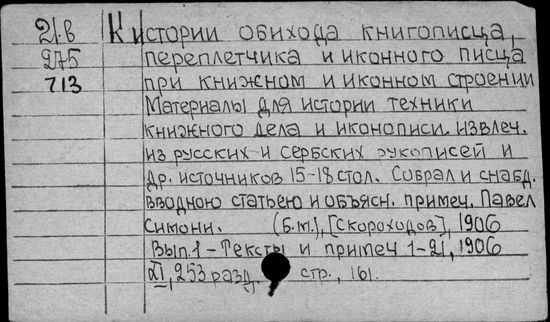 21.в К истории обихода книгописца,
275 переплетчика и иконного писца
713 при книжном и иконном строении
Материалы для истории техники
книжного дела и иконописи. извлеч.
из русских и сербских рукописей и
др. источников 15-18 стол. Собрал и снабд.
вводною статьею и объясн. примеч. Павел
Симони. (Б.м.), [Скороходов], 1906
Вып. 1 - Тексты и примеч 1-21, 1906
XI, 253 разд. стр., 161.